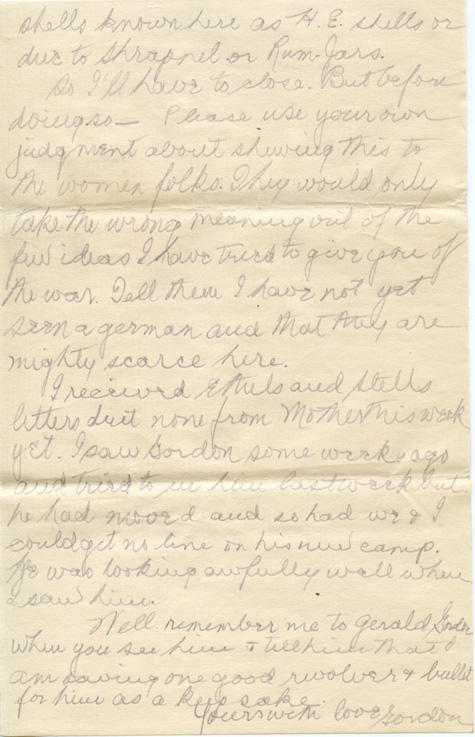 shells known here as H.E. shells or
due to Shrapnel or Rum-Jars.
So I'll have to close. But before
doing so — Please use your own
judgment about shewing this to
the women folks. They would only
take the wrong meaning out of the
few ideas I have tried to give you of
the war. Tell them I have not yet
seen a german and that they are
mighty scarce here.
I received Ethels and Stells
letters but none from Mother this week
yet. I saw Gordon some weeks ago
and tried to see him last week but
he had moved and so had we & I
could get no line on his new camp.
He was looking awfully well when
I saw him.
Well remember me to Gerald
when you see him & tell him that I
am saving one good revolver & bullet
for him as a keep sake.
Yours with love Gordon